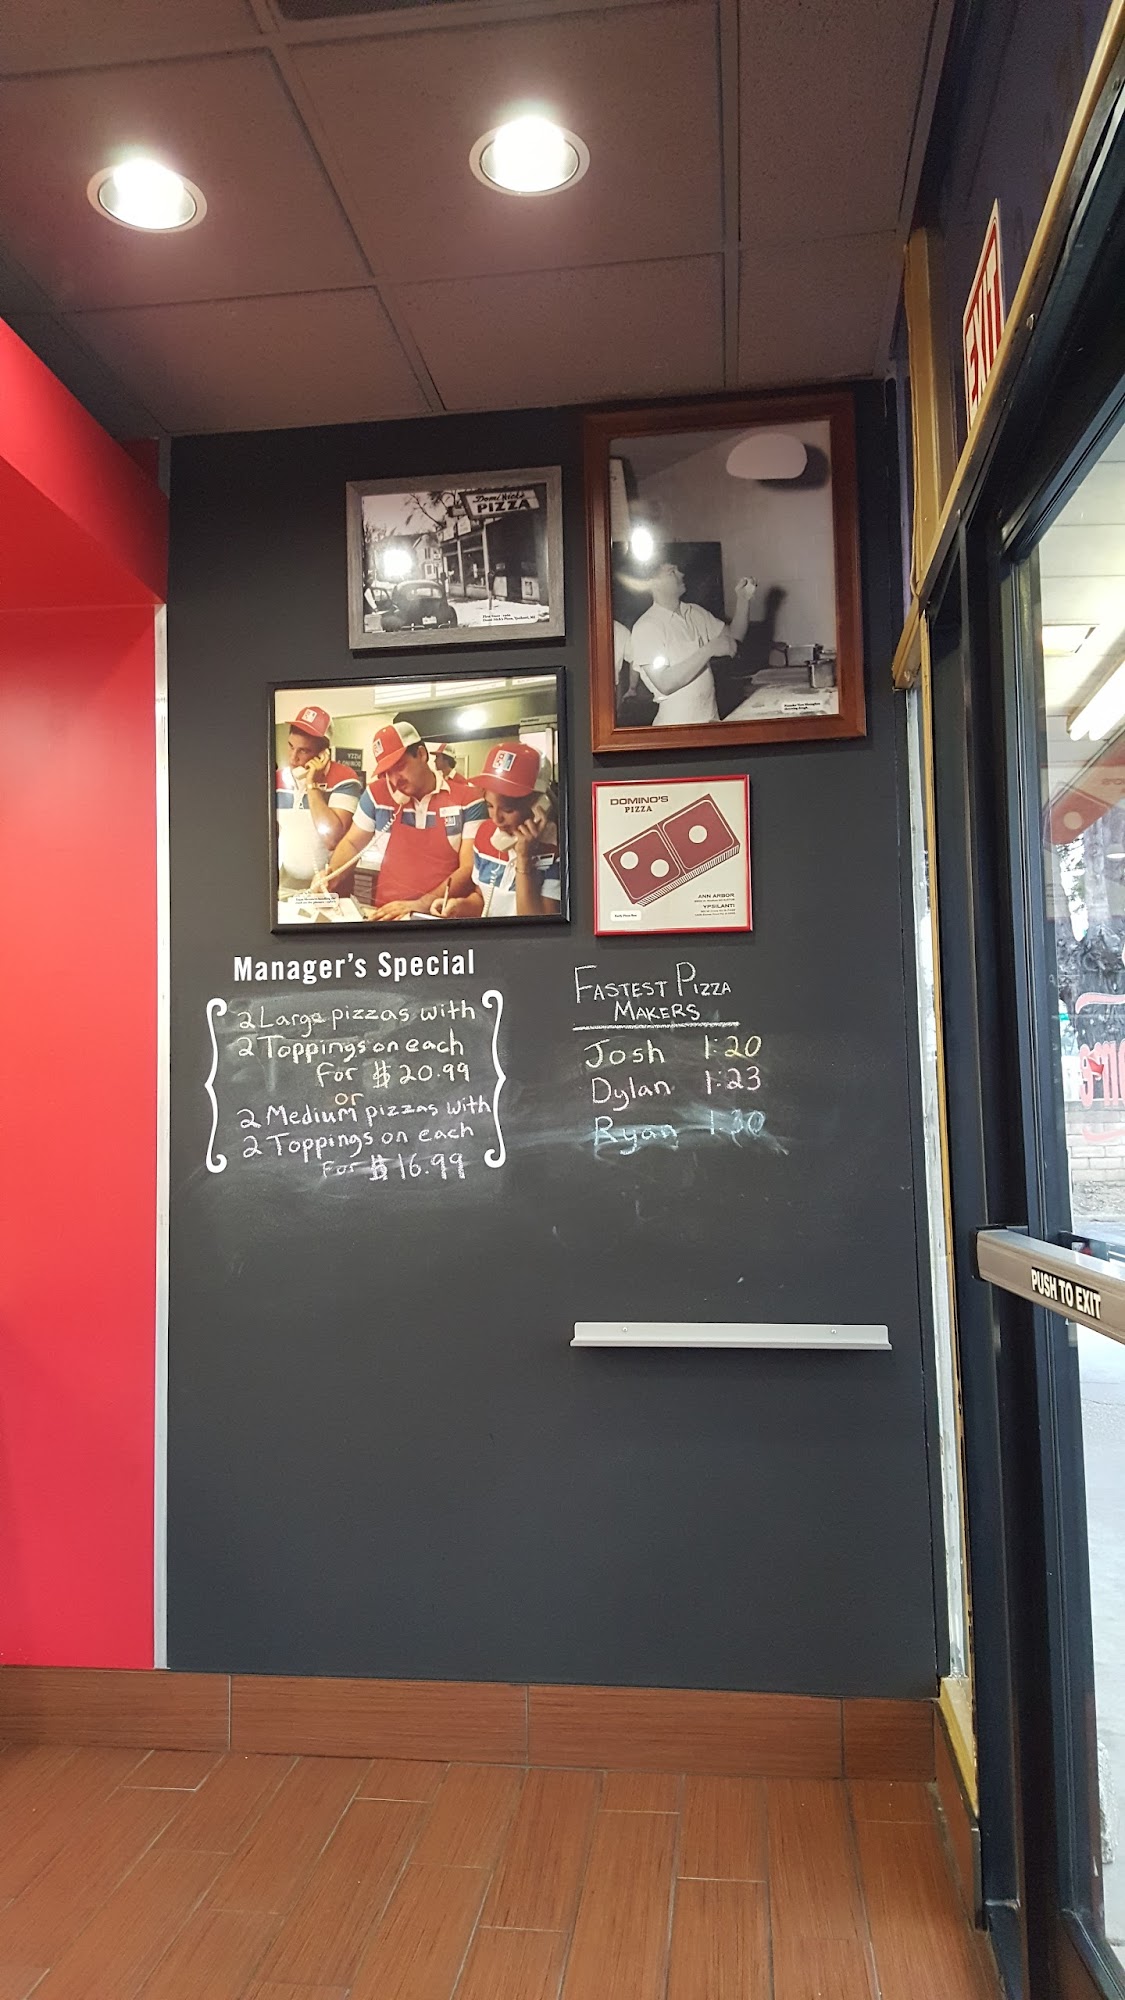 EXIT
DomiNick's
PIZZA
DOMINO'S
PIZZA
ANN ARBOR
YPSILANTI
Early Pizza Box
Manager's Special
2 Large pizzas with
2 Toppings on each
for $20.99
or
2 Medium pizzas with
2 Toppings on each
for $16.99
FASTEST PIZZA
MAKERS
Josh 1:20
Dylan 1:23
Ryan 1:30
PUSH TO EXIT